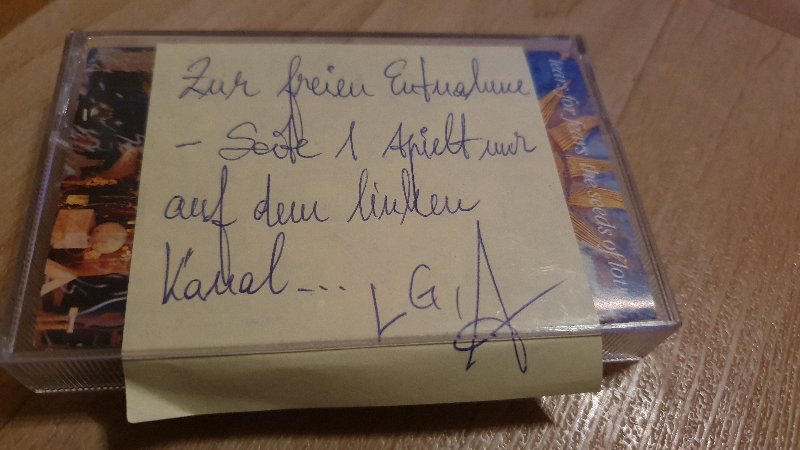 Zur freien Entnahme
- Seite 1 spielt nur
auf dem linken
Kanal ---...
LG,
tears for fears the seeds of love